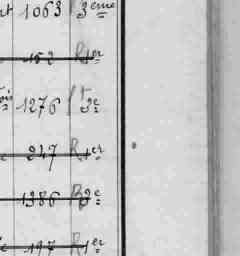 nt 1063 3eme
152 R 1er
ois 1276 f 3e
247 R 1er
1386 R 2e
197 R 1er